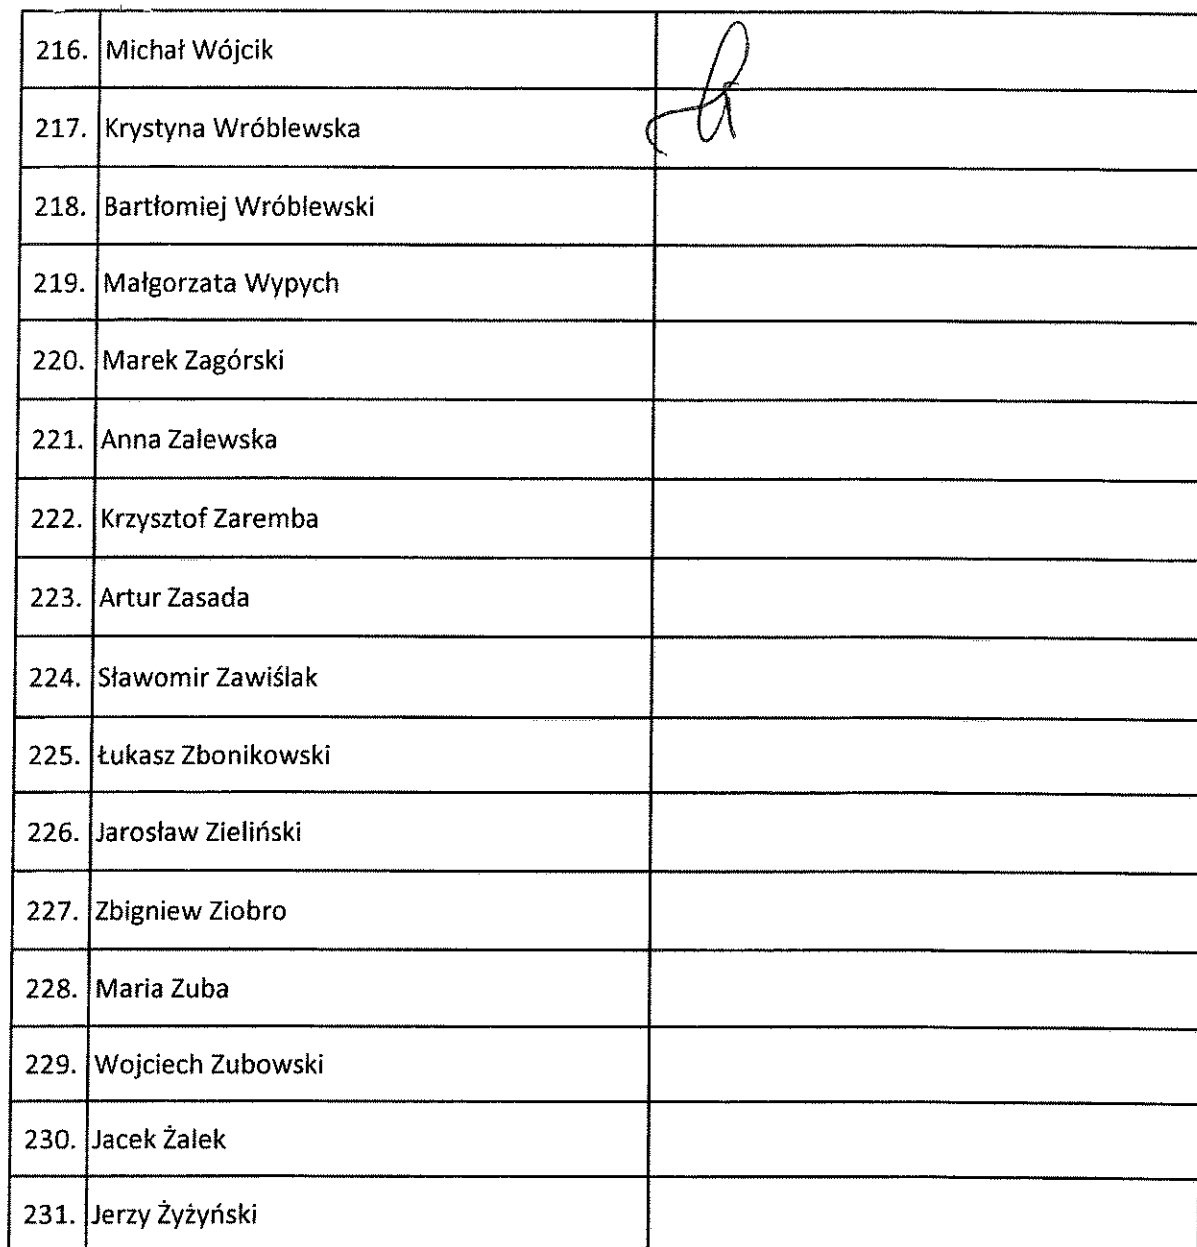 216. Michał Wójcik
217. Krystyna Wróblewska
218. Bartłomiej Wróblewski
219. Małgorzata Wypych
220. Marek Zagórski
221. Anna Zalewska
222. Krzysztof Zaremba
223. Artur Zasada
224. Sławomir Zawiślak
225. Łukasz Zbonikowski
226. Jarosław Zieliński
227. Zbigniew Ziobro
228. Maria Zuba
229. Wojciech Zubowski
230. Jacek Żalek
231. Jerzy Żyżyński